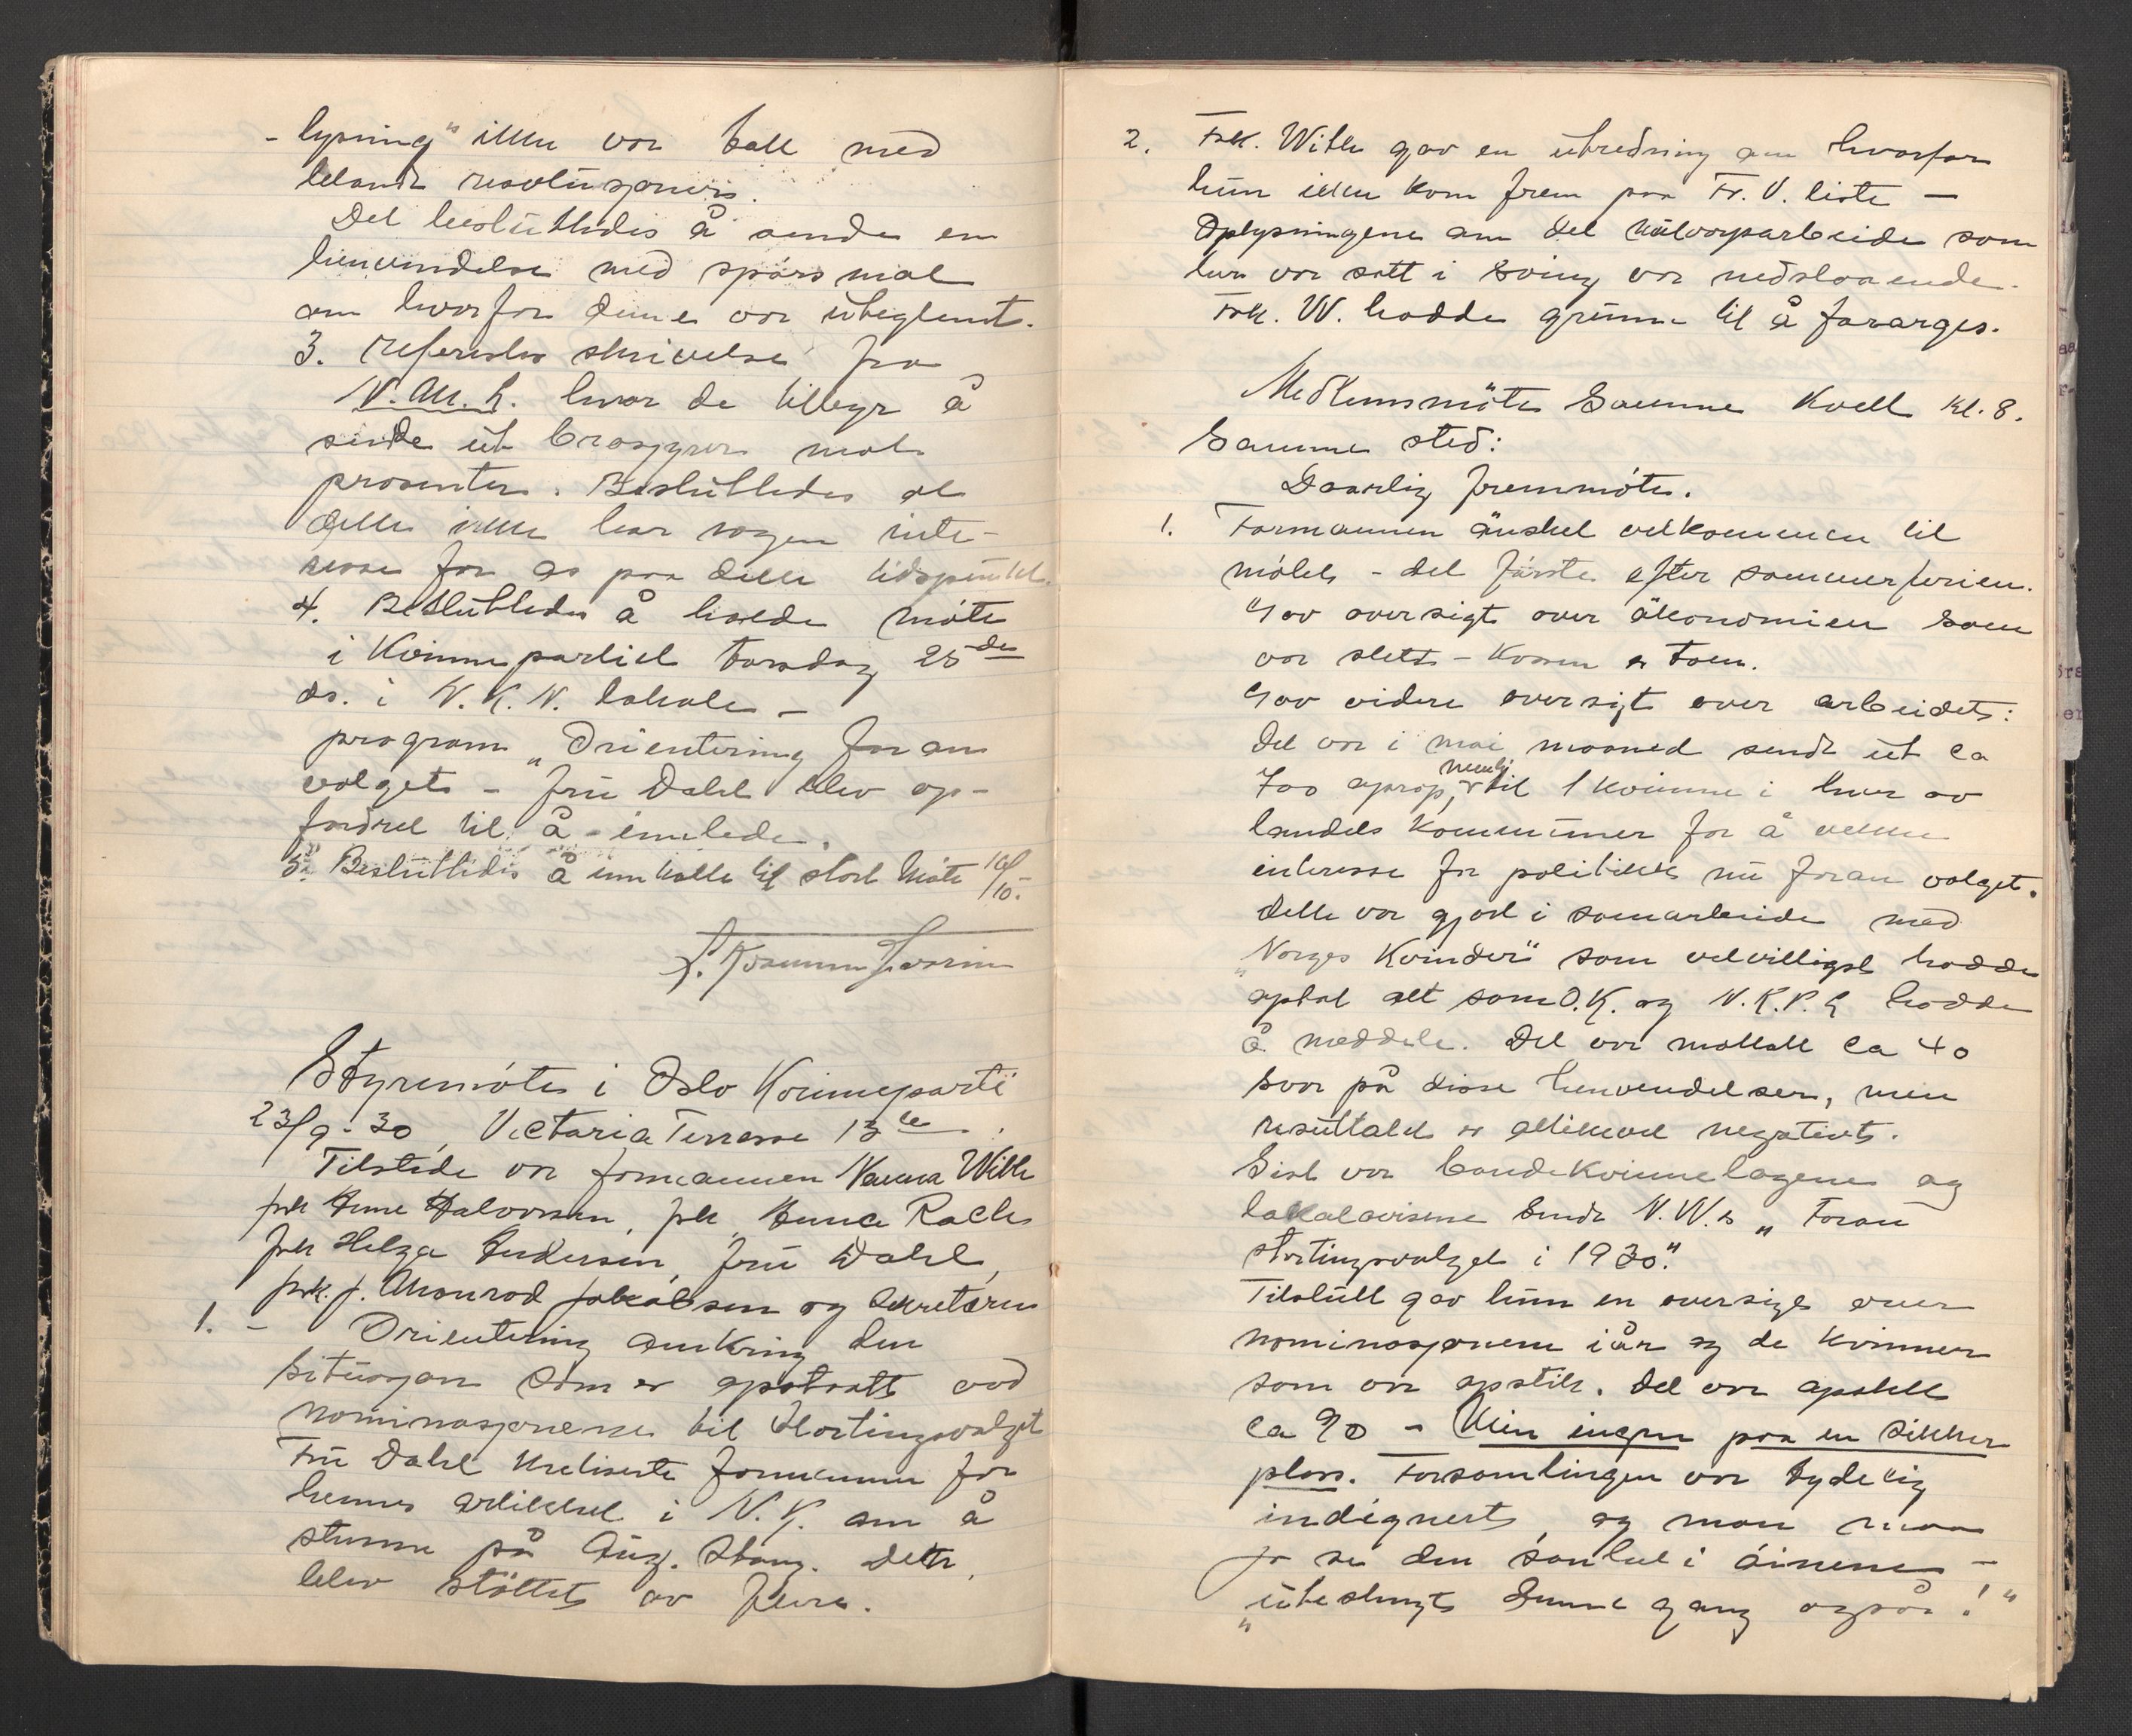 - lysning" ikke var tatt med
blandt resolusjonens.
Det besluttedes å sende en
henvendelse med spörsmal
om hvorfor denne var uteglemt.
3. Refereertes skrivelse fra
N.M.L. hvor de tilbyr å
sende ut brosjyrer mot
prosenter. Besluttedes at
dette ikke har nogen inte-
resse for os paa dette tidspunkt.
4. Besluttedes å holde möte
i Kvinnepartiet torsdag 25de
ds. i N.K.N. lokale -
program "Orientering foran
valget" - fru Dahl blev op-
fordret til å innlede.
5. Besluttedes å innkalle til stort möte 10/10.
Styremöte i Oslo Kvinneparti
23/9-30, Victoria Terrasse 13 b
Tilstede var formannen Nanna With
frk Anne Halvorsen, frk Anna Rachs
frk Helga Andersen, fru Dahl,
frk. J. Monrad Jakobsen og sekretæren
1. - Orientering omkring den
situasjon som er opstaatt ved
nominasjonene til Stortingsvalget
Fru Dahl kritiserte formannen for
hennes artikkel i N.K. om å
stemme på Aug. Stang. Dette
blev stöttet av flere.
2. Frk. With gav en utredning om hvorfor
hun ikke kom frem paa Fr. V. liste -
Oplysningene om det muldvarparbeide som
her var satt i sving var nedslaaende.
Frk. W. hadde grunn til å forarges.
Medlemsmöte samme kvell kl. 8.
samme sted:
Daarlig fremmöte.
1. Formannen önsket velkommen til
mötet - det förste efter sommerferien.
Gav oversigt over ökonomien som
var slett - Kassen er tom.
Gav videre oversigt over arbeidet:
Det var i mai maaned sendt ut ca
700 oprop, nemlig til 1 kvinne i hver av
landets kommuner for å vekke
interesse for politikk nu foran valget.
Dette var gjort i samarbeide med
"Norges Kvinder" som velvilligst hadde
optat alt som O.K. og N.K.P.L hadde
å meddele. Det var mottatt ca 40
svar på disse henvendelser, men
resultatet er allikevel negativt.
Sist var bondekvinnelagene og
lokalavisene sendt N.W.s "Foran
stortingsvalget i 1930".
Tilslutt gav hun en oversigt over
nominasjonene iår og de kvinner
som var opstilt. Det var opstilt
ca 90 - Men ingen paa en sikker
plass. Forsamlingen var tydelig
indignert, og man maa
jo se den sanhet i öinene -
"utestengt denne gang også!"